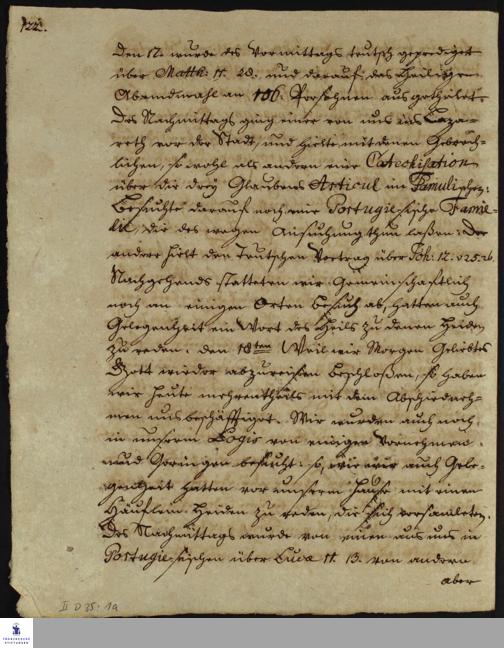 122.
Den 17. wurde des Vormittags teutsch geprediget
über Matth: 11. 28. und darauf das Heilige
Abendmahl an 106. Persohnen ausgetheilet
Des Nachmittags ging einer von uns ins Laza-
reth vor der Stadt, und hielte mit denen Gebrech-
lichen, so wohl als andern eine Catechisation
über die drey Glaubens Articul im Tamulischen:
Besuchte darauf noch eine Portugiesische Fami-
lie, die des wegen Ansuchung thun laßen: Der
andere hielt den Teutschen Vortrag über Joh: 12: v 25. 26.
Nachgehends statteten wir Gemeinschaftlich
noch an einigen Orten Besuch ab, hatten auch
Gelegenheit ein Wort des Heils zu denen Heiden
zu reden. den 18ten Weil wir Morgen Geliebtes
Gott wieder abzureisen beschloßen, so haben
wir heute mehrentheils mit dem Abschiedneh-
men uns beschäfftiget. Wir wurden auch noch
in unserm Logis von einigen Vornehmen
und Geringen besucht: so, wie wir auch Gele-
genheit hatten vor unserm Hause mit einem
Häuflein Heiden zu reden, die sich versamleten.
Des Nachmittags wurde von einem aus uns in
Portugiesischen über Luca 11. 13. von andern
aber
II D 35: 1a
FRANCKESCHE
STIFTUNGEN